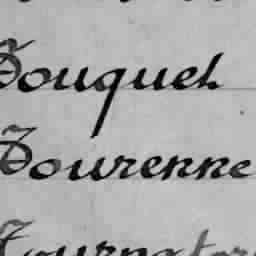 Touquet
Tourenne